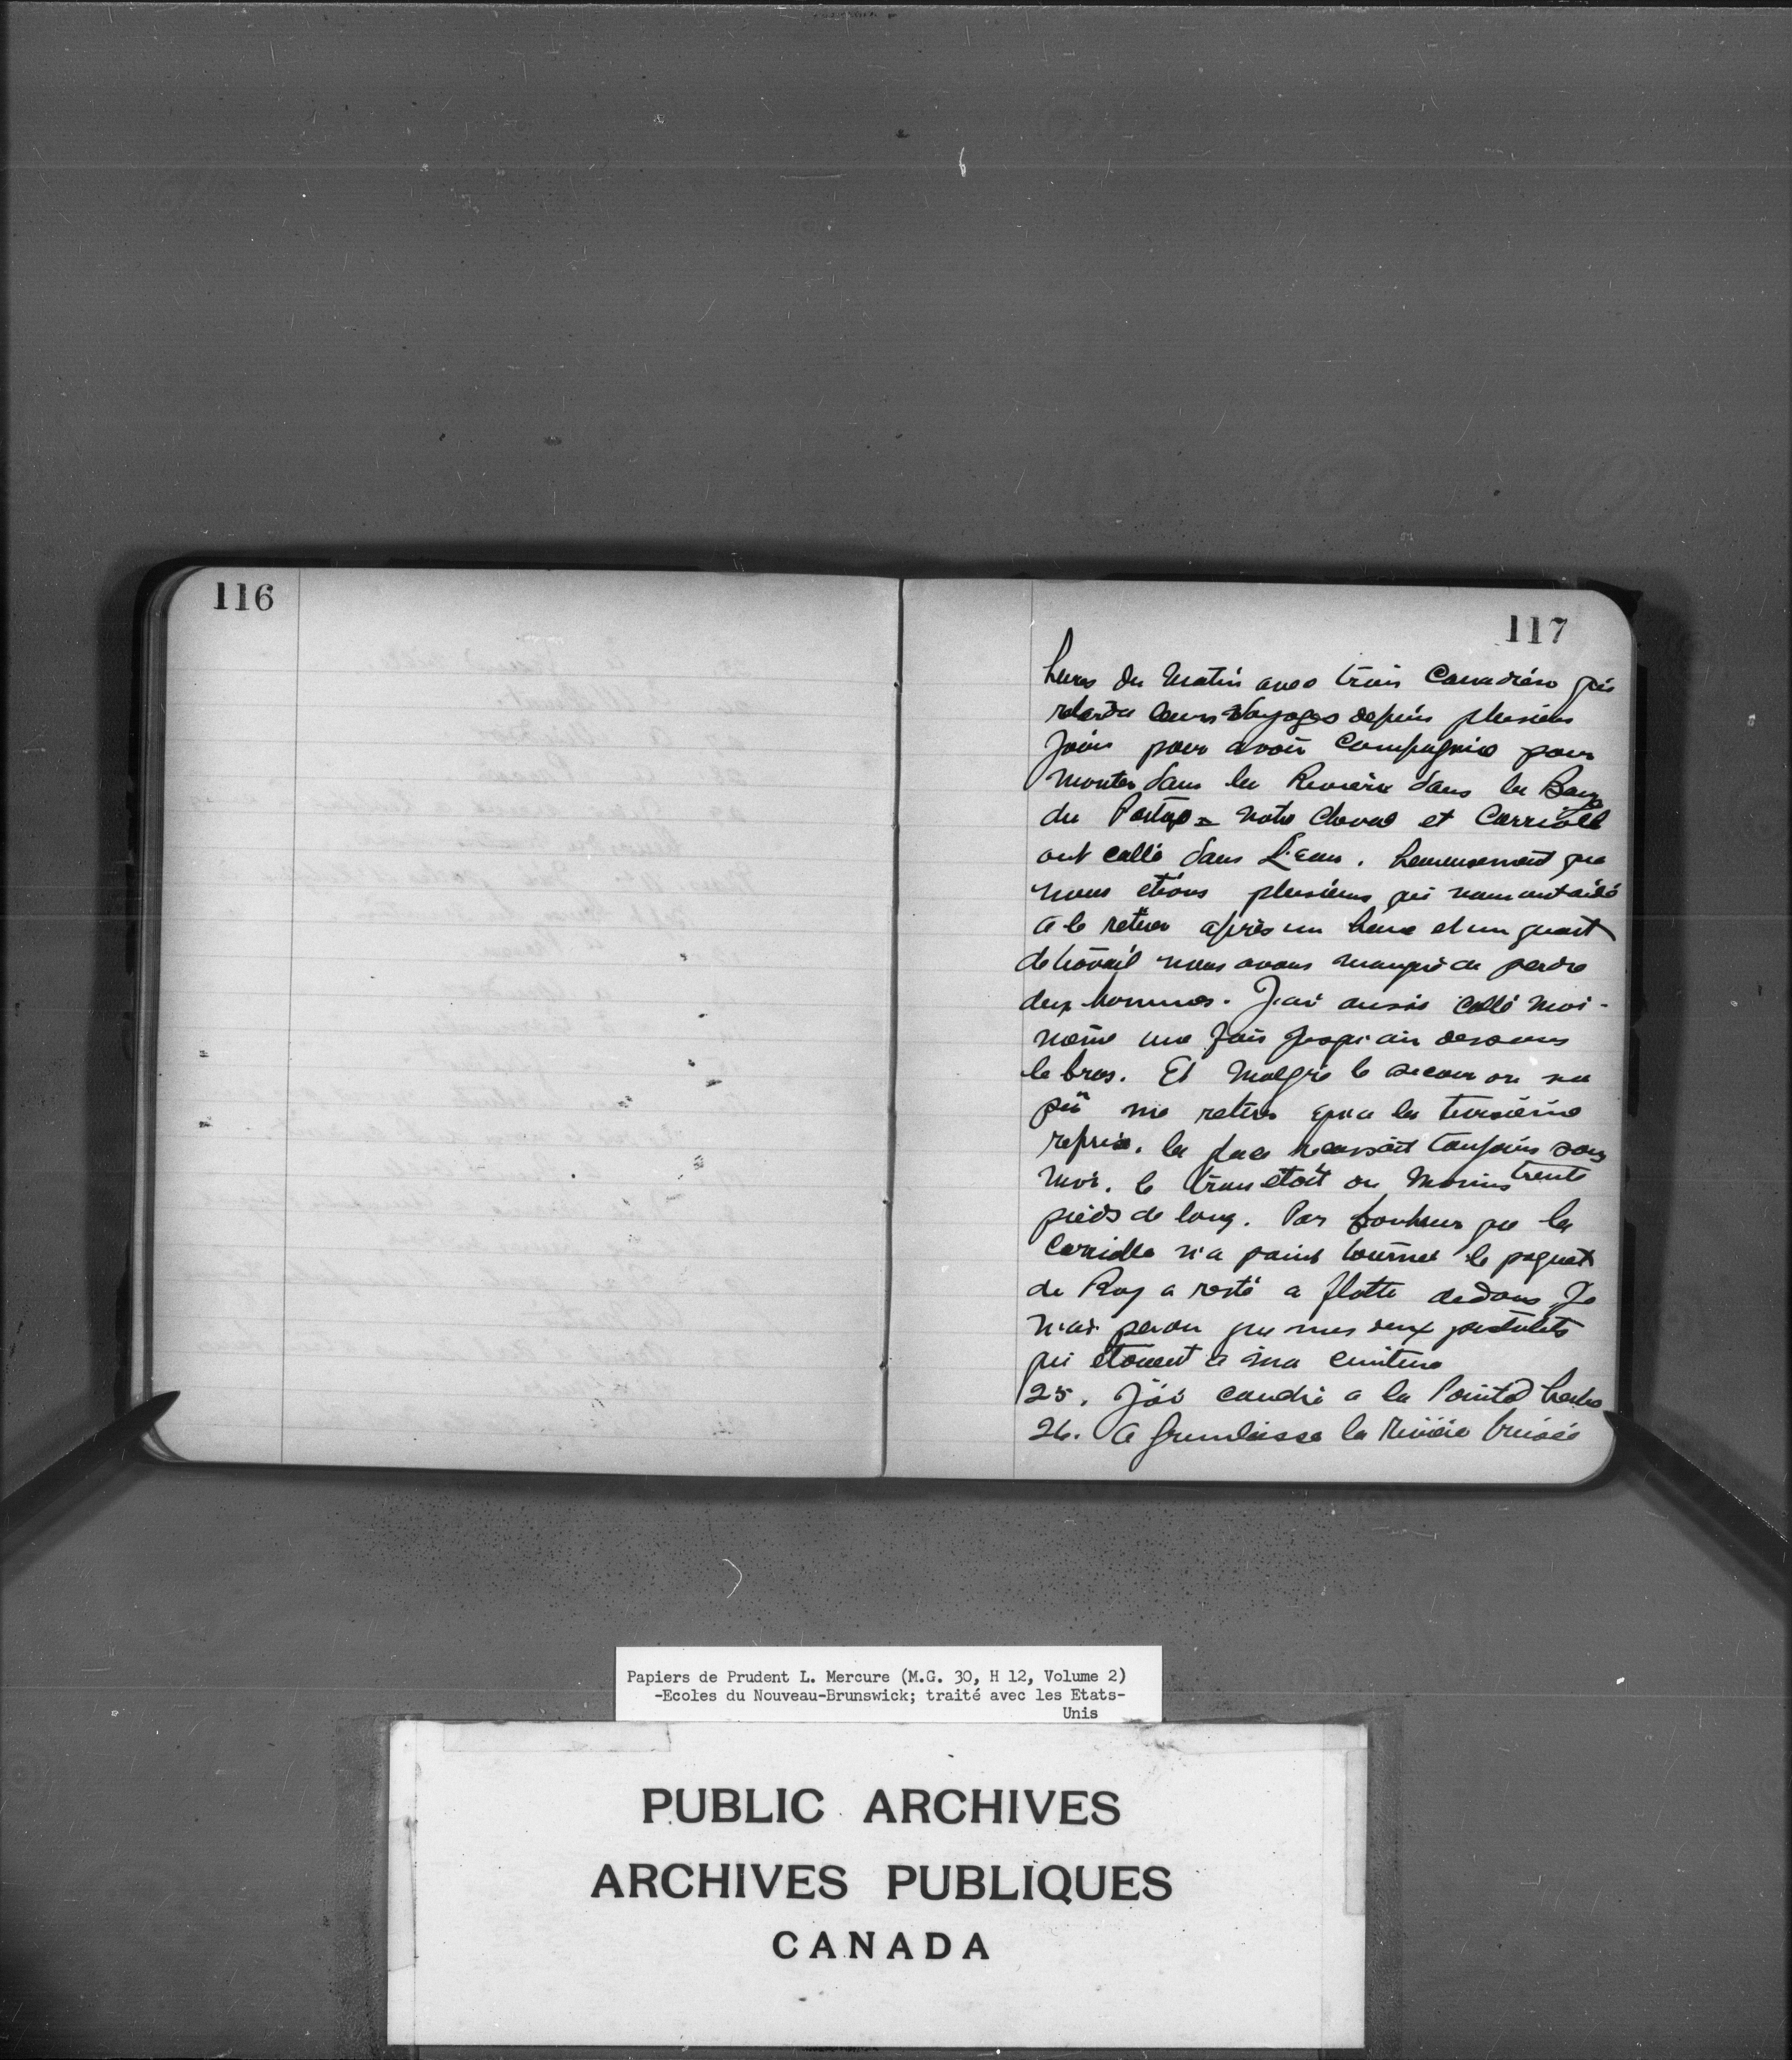 116
117
heures du Matin avec trois Canadiens qui
retardé leurs Voyages depuis plusieurs
Jours pour avoir Compagnie pour
Monter dans la Riviere dans le Bour
du Portage = notre Cheval et Carriole
ont callé dans L'Eau. heureusement que
nous etions plusieurs qui nous ont aidé
a le retirer après un heure et un quart
de travail nous avons manqué de perdre
deux hommes. J'ai aussi callé moi-
même une fois jusqu'au dessous
le bras. Et Malgré le secour on na
pû me retirer qu'a la troisième
reprise. la glace toujours sous
moi. le trou etoit au Moins trente
pieds de long. Par bonheur que la
Carriolle n'a point tourner le paquet
de Roy a resté a flotte dedans Je
n'ai perdu que mes deux pistolets
qui étoient a ma ceinture
25. J'ai couché a la Pointe
26. A la Rivière
Papiers de Prudent L. Mercure (M.G. 30, H 12, Volume 2)
-Ecoles du Nouveau-Brunswick; traité avec les Etats-
Unis
PUBLIC ARCHIVES
ARCHIVES PUBLIQUES
CANADA